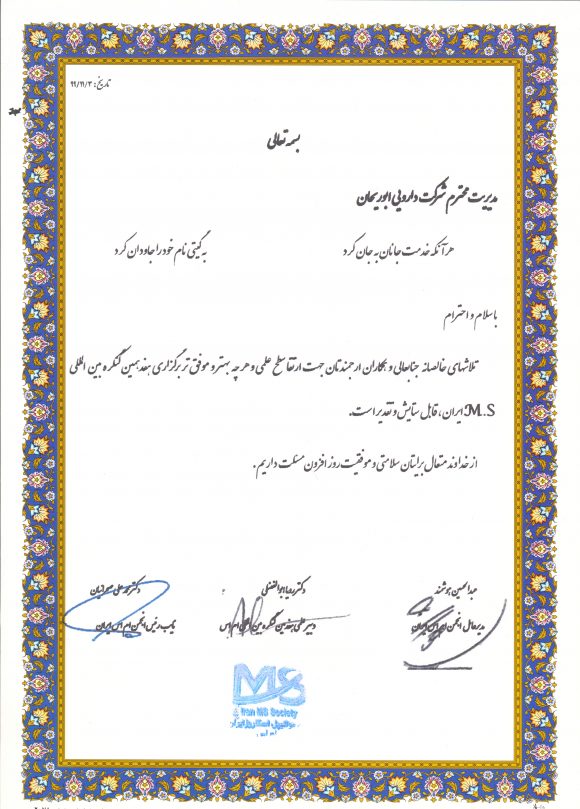 تاریخ: ۹۹/۱۱/۳
بسمه تعالی
مدیریت محترم شرکت دارویی ابوریحان
هرآنکه خدمت جانان به جان کرد به گیتی نام خود را جاودان کرد
باسلام و احترام
تلاشهای خالصانه جنابعالی و همکاران ارجمندتان جهت ارتقا سطح علمی و هر چه بهتر و موفق تر برگزاری هفدهمین کنگره بین المللی
M.S ایران، قابل ستایش و تقدیر است.
از خداوند متعال برایتان سلامتی و موفقیت روز افزون مسئلت داریم.
عبدالحسین هوشمند دکتر رضا ابوالفضلی دکتر محمد علی صحرائیان
مدیرعامل انجمن ام اس ایران دبیر علمی هفدهمین کنگره بین المللی ام اس نایب رئیس انجمن ام اس ایران
MS
Iran MS Society